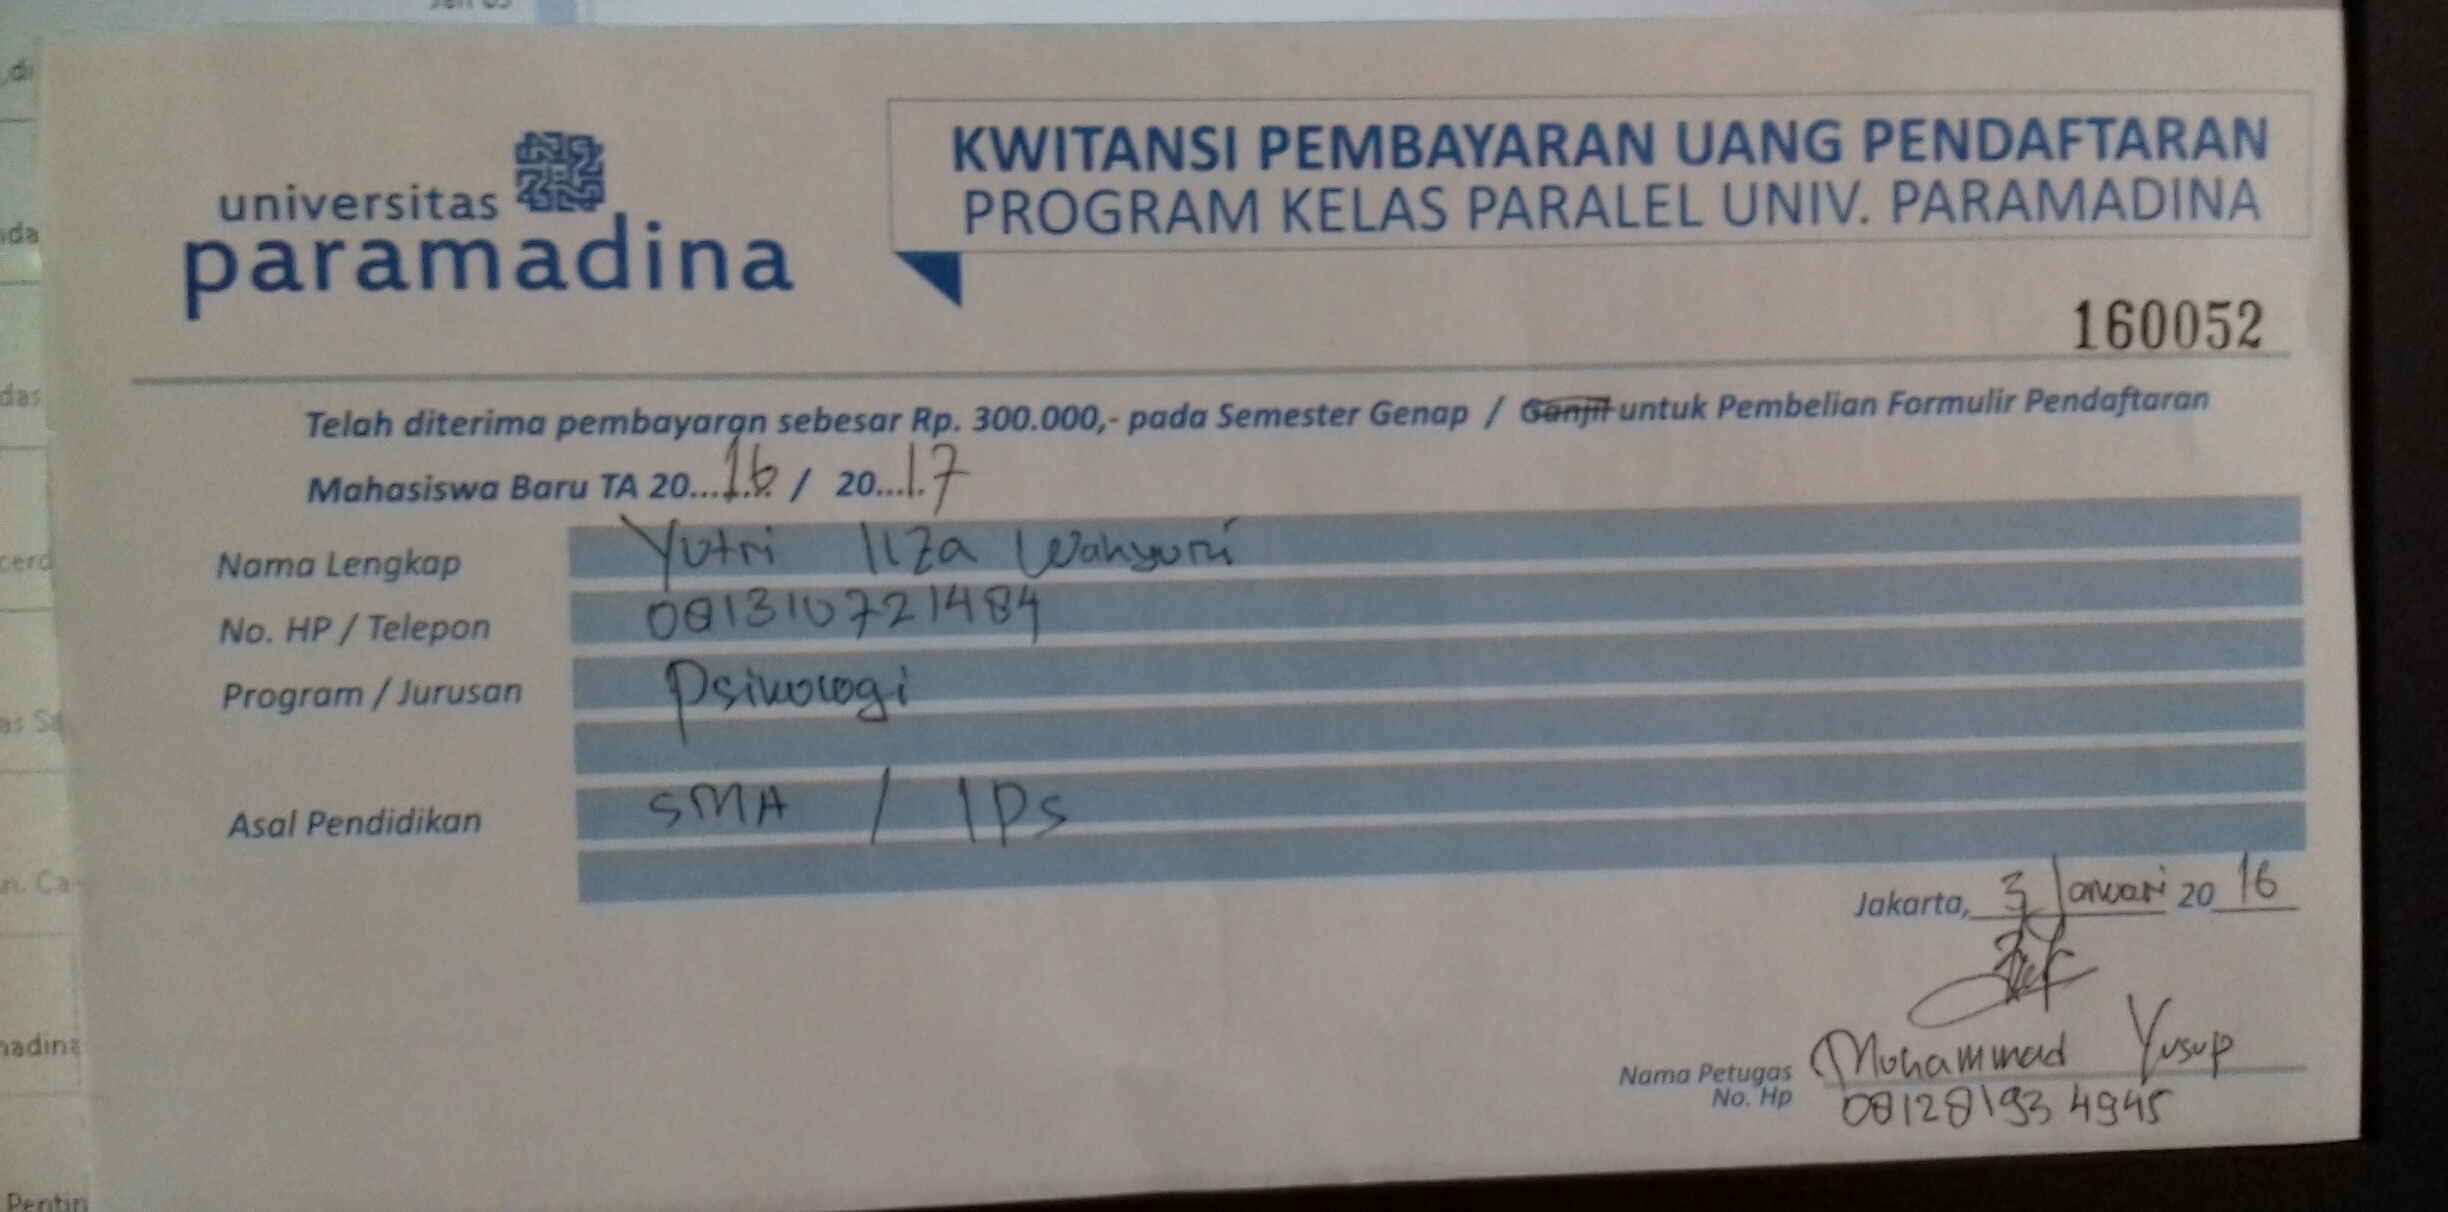 universitas
paramadina
KWITANSI PEMBAYARAN UANG PENDAFTARAN
PROGRAM KELAS PARALEL UNIV. PARAMADINA
160052
Telah diterima pembayaran sebesar Rp. 300.000,- pada Semester Genap / Ganjil untuk Pembelian Formulir Pendaftaran
Mahasiswa Baru TA 20...16 / 20...17
Nama Lengkap Yutri Ilza Wahyuni
No. HP / Telepon 081310721484
Program / Jurusan Psikologi
Asal Pendidikan SMA / IPS
Jakarta, 3 Januari 20 16
Nama Petugas Mohammad Yusup
No. Hp 081281934945